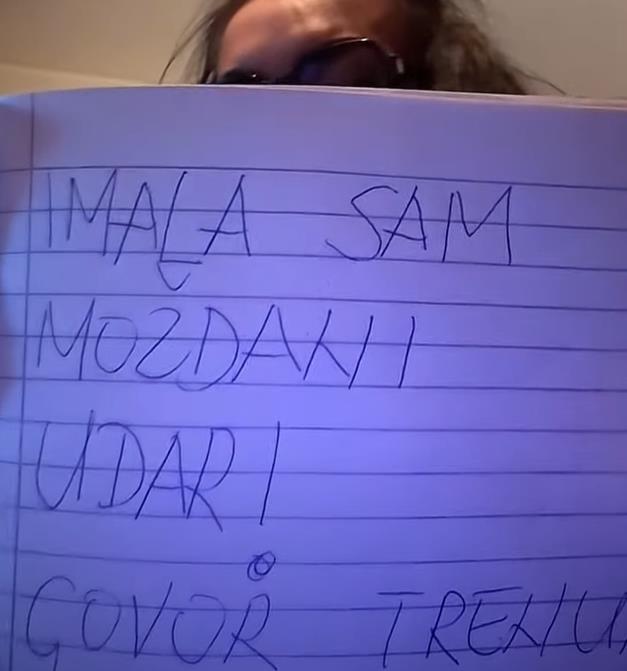 IMALA SAM
MOŽDANI
UDAR!
GOVOR TRENU